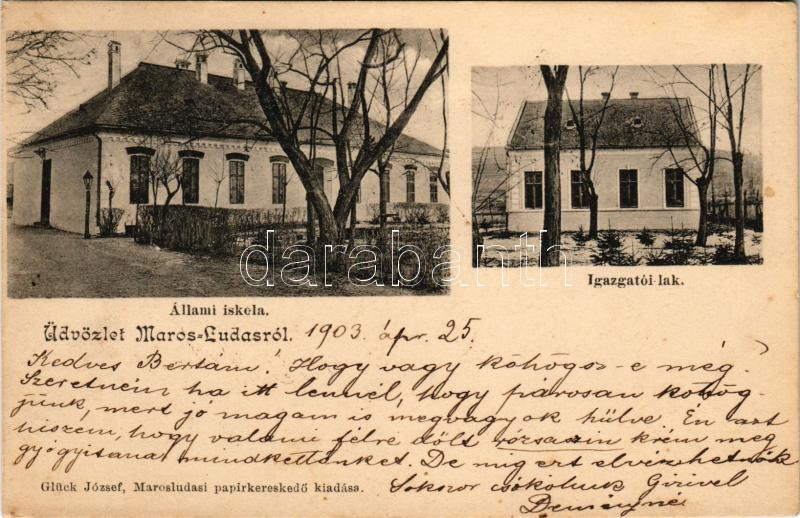 Állami iskola.
Igazgatói lak.
darabanth
Üdvözlet Maros-Ludasról. 1903. ápr. 25.
Kedves Bertám! Hogy vagy köhögsz-e még?
Szeretném ha itt lennél, hogy párosan köhög-
jünk, mert jó magam is megvagyok hülve. Én azt
hiszem, hogy valami félre dölt rózsaszin krém meg
gyógyitana mindkettönket. De mig ezt elvégezhetnök
Sokszor csókolunk Gizivel
Glück József, Marosludasi papirkereskedő kiadása.